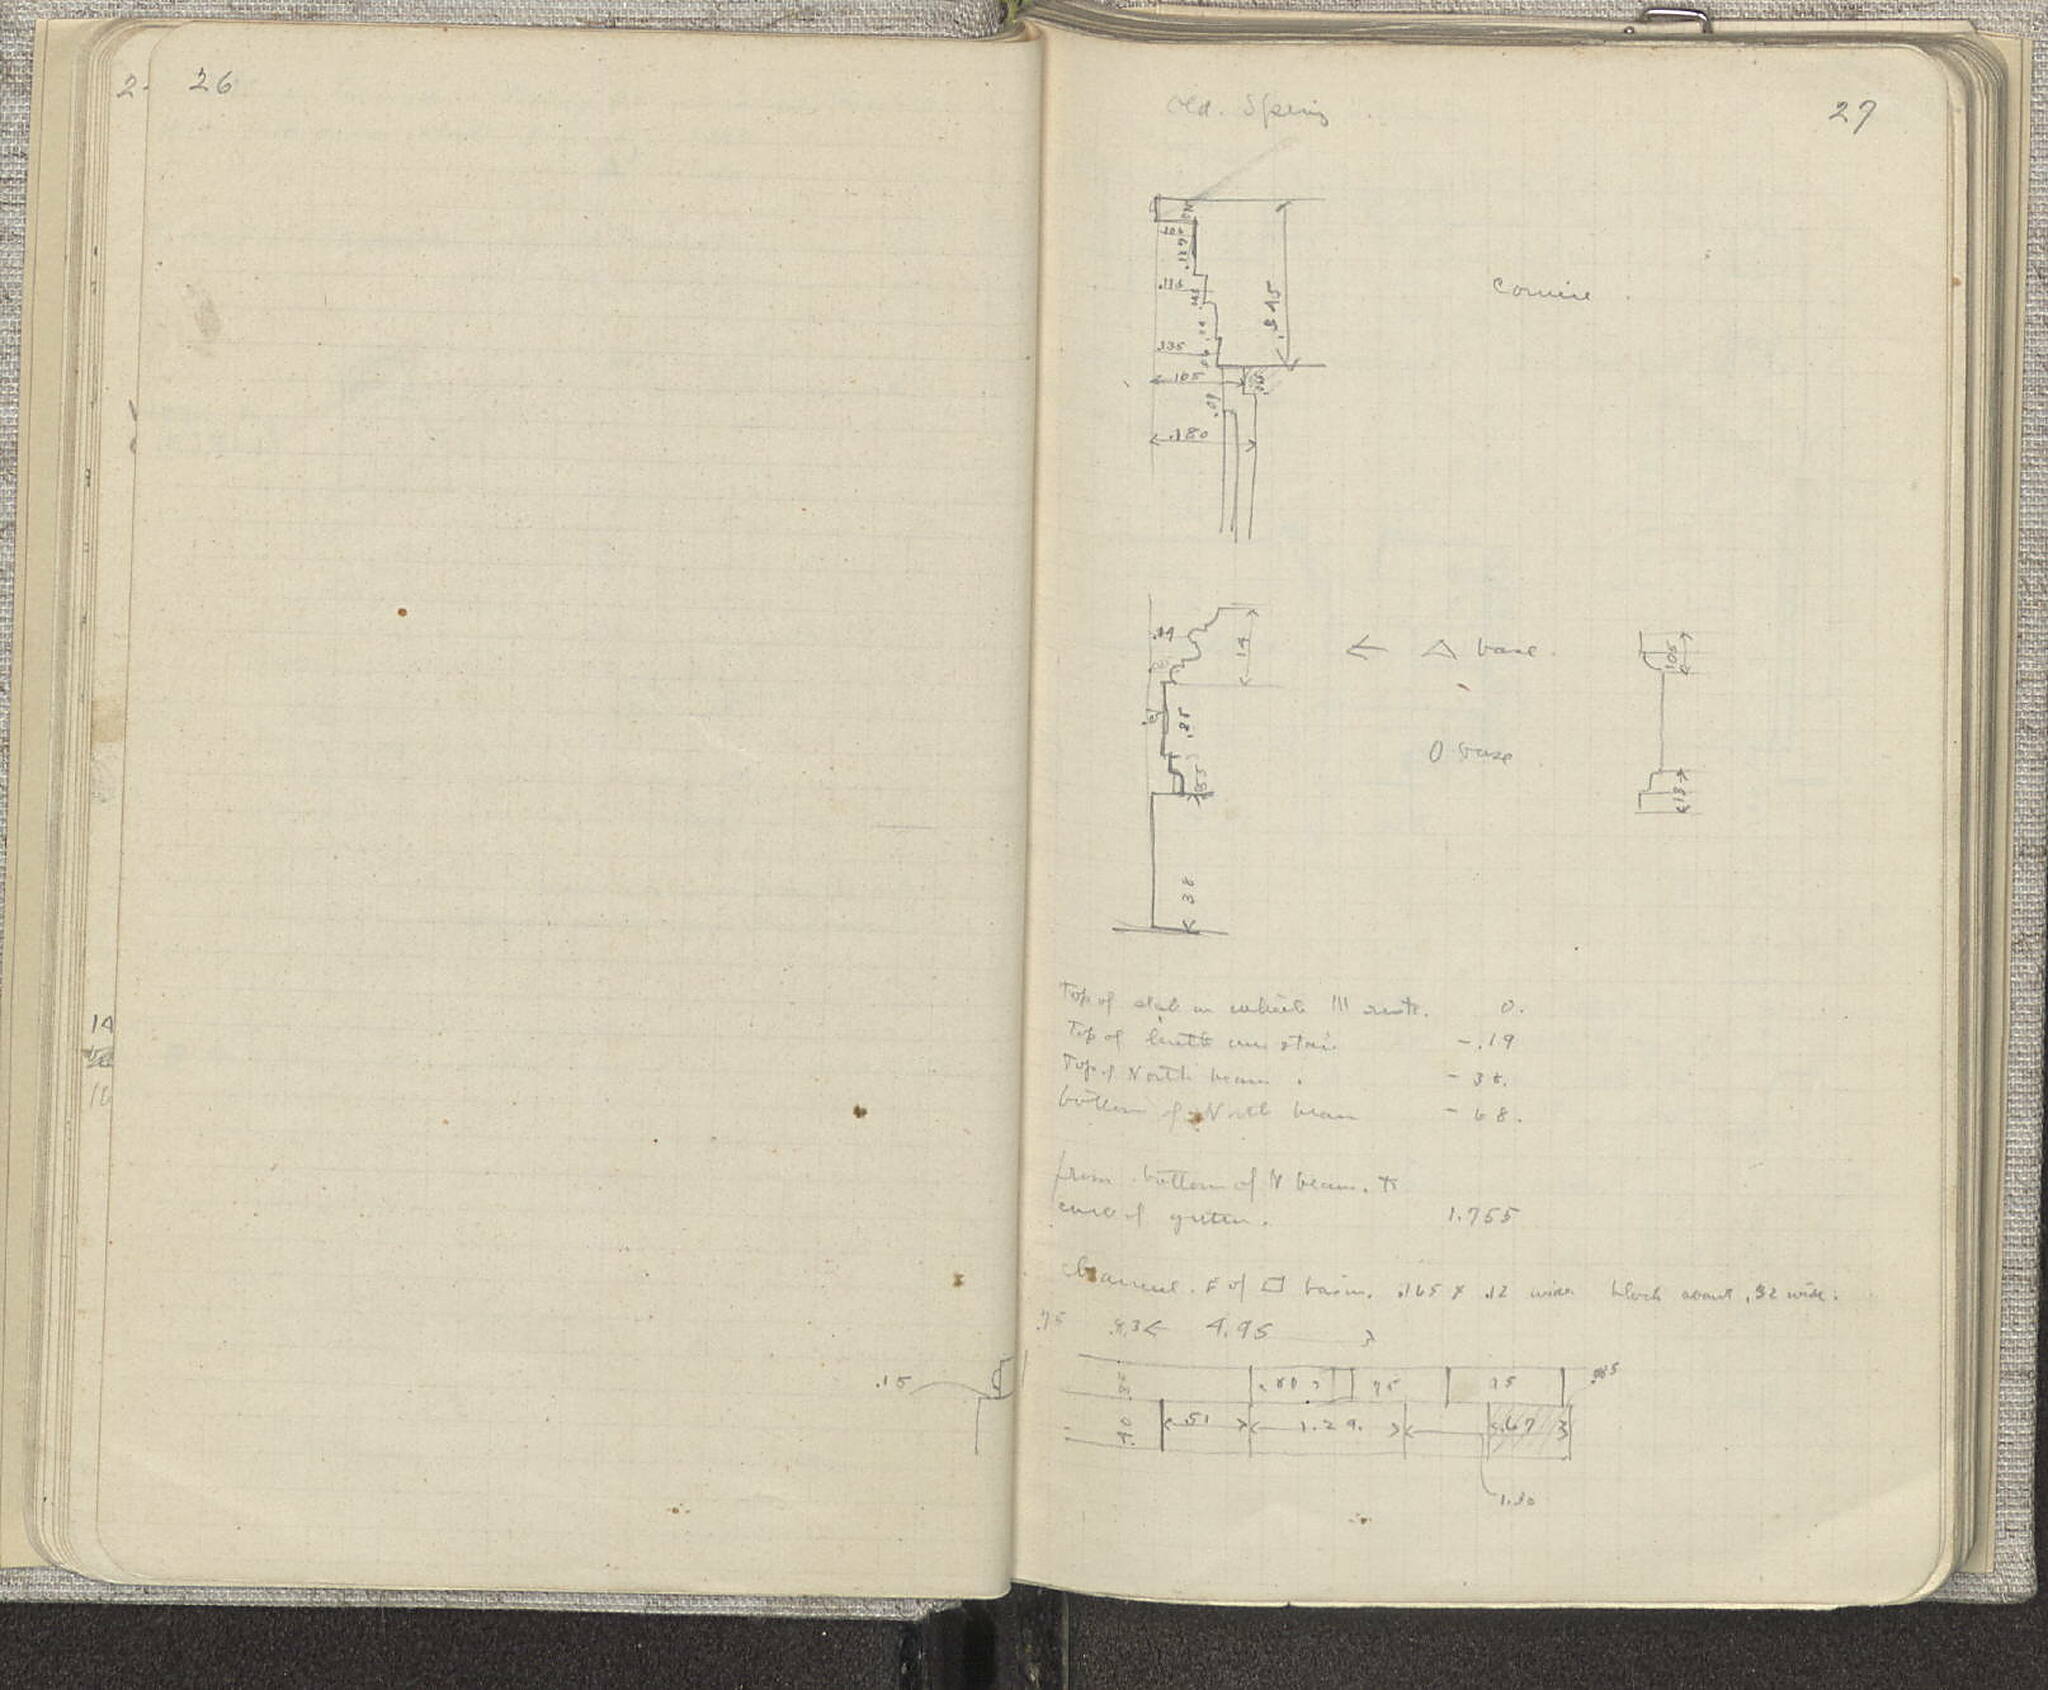 26
27
Old. Spring
cornice
.116
.135
.345
.105
.09
.180
.14
14
← △ base.
.105
.85
O base
.18
38
Top of slab on which III rests. 0.
Top of lintel over stair -.19
Top of North beam. - 38.
bottom of North beam - 68.
from bottom of N beam. to
end of gutter. 1.755
channel. E of □ basin. .165 × .12 wide block about .32 wide.
.75 8.3 ← 4.95
.15
.60 75 75
.40 51 1.29. .67
1.30
14
16